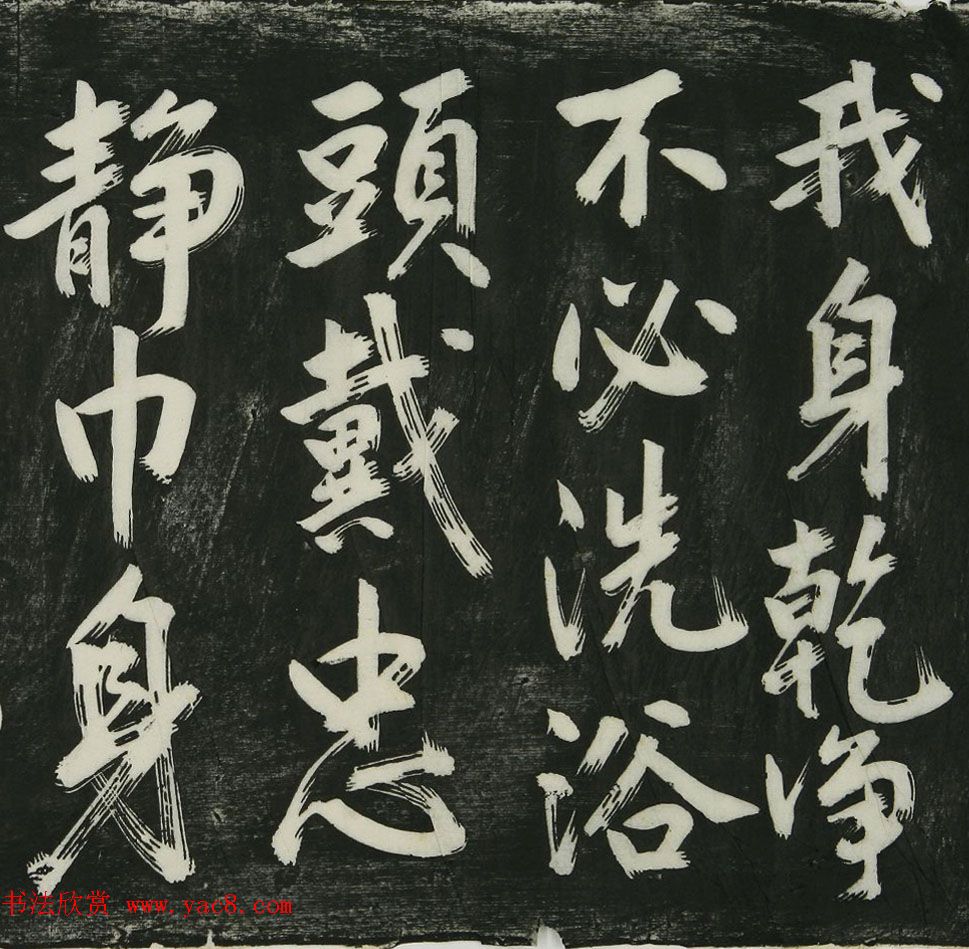 我身乾净
不必洗浴
頭戴忠
静巾身
书法欣赏 www.yac8.com